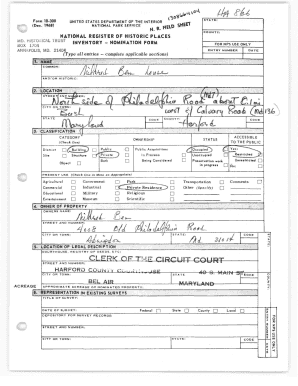 HA 866
Form 10-300
(Dec. 1968)
UNITED STATES DEPARTMENT OF THE INTERIOR
NATIONAL PARK SERVICE
STATE:
NATIONAL REGISTER OF HISTORIC PLACES
INVENTORY - NOMINATION FORM
H. R. FIELD SHEET
COUNTY:
MD. HISTORICAL TRUST
BOX 1704
ANNAPOLIS, MD. 21404
FOR NPS USE ONLY
ENTRY NUMBER
DATE
(Type all entries - complete applicable sections)
1. NAME
COMMON:
House
AND/OR HISTORIC:
2. LOCATION
STREET AND NUMBER:
North side of Philadelphia Road about
CITY OR TOWN:
East
west of Calvary Road
STATE
Maryland
CODE
COUNTY:
Harford
CODE
3. CLASSIFICATION
CATEGORY
(Check One)
OWNERSHIP
STATUS
ACCESSIBLE
TO THE PUBLIC
District
Building
Public
Public Acquisition:
Occupied
Yes:
Site
Structure
Private
In Process
Unoccupied
Restricted
Object
Both
Being Considered
Preservation work
in progress
Unrestricted
No
PRESENT USE (Check One or More as Appropriate)
Agricultural
Government
Park
Transportation
Comments
Commercial
Industrial
Private Residence
Other (Specify)
Educational
Military
Religious
Entertainment
Museum
Scientific
4. OWNER OF PROPERTY
OWNERS NAME:
STREET AND NUMBER:
Old Philadelphia Road
CITY OR TOWN:
Abingdon
STATE:
Md
CODE
5. LOCATION OF LEGAL DESCRIPTION
COURTHOUSE, REGISTRY OF DEEDS, ETC:
CLERK OF THE CIRCUIT COURT
STREET AND NUMBER:
HARFORD COUNTY COURTHOUSE
40 S MAIN ST
CITY OR TOWN:
BEL AIR
STATE
MARYLAND
CODE
ACREAGE
APPROXIMATE ACREAGE OF NOMINATED PROPERTY:
6. REPRESENTATION IN EXISTING SURVEYS
TITLE OF SURVEY:
DATE OF SURVEY:
Federal
State
County
Local
DEPOSITORY FOR SURVEY RECORDS:
STREET AND NUMBER:
CITY OR TOWN:
STATE:
CODE
FOR NPS USE ONLY